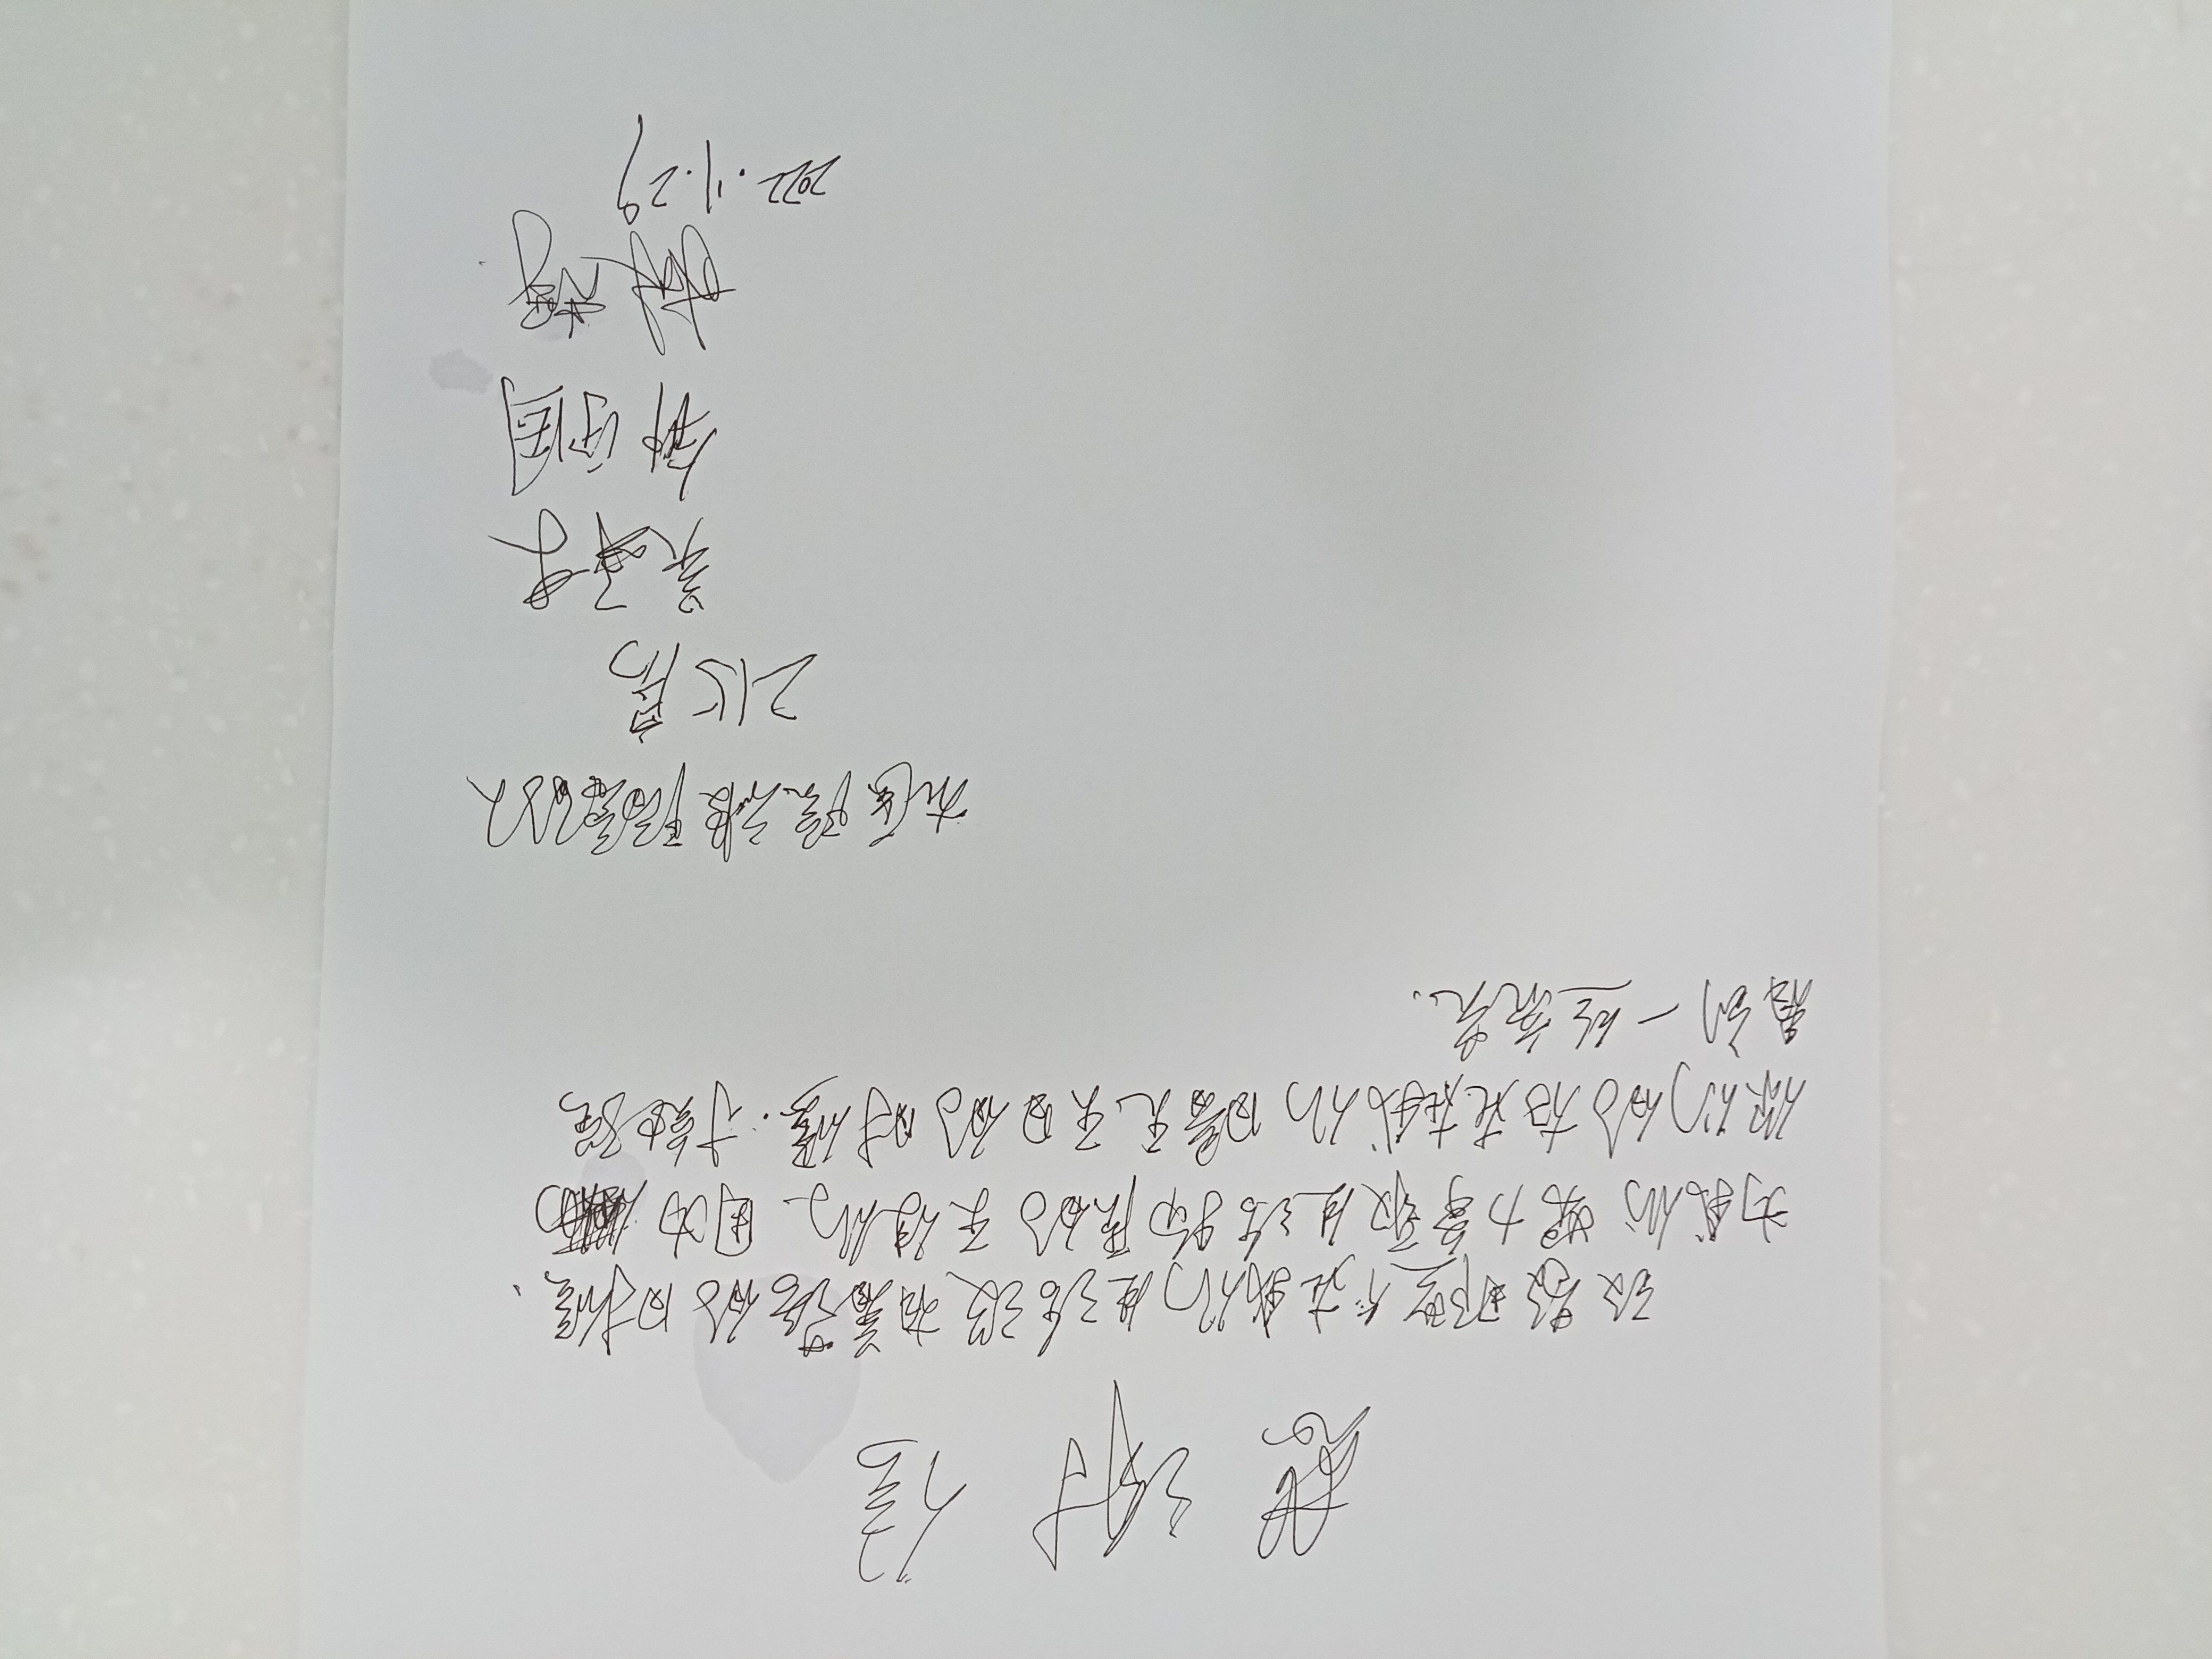 感谢信
致敬那些个在我们生活没有着落的时候、
为我们努力争取生活物质的天使们、因为
你们的存在在我们暗无天日的时候.才勉强
看到一丝亮光、
在医院被隔离的人
215房
吴承才
钟国
林辉
2022.11.29